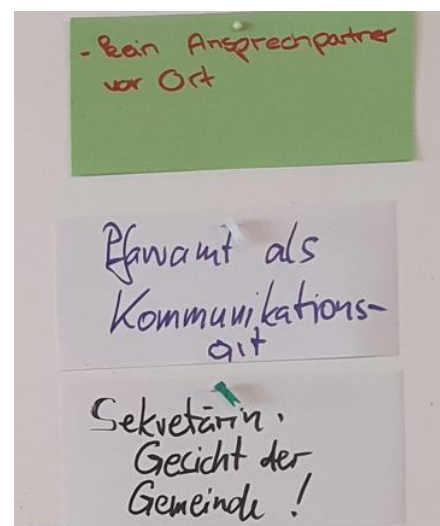 - Kein Ansprechpartner
vor Ort
Pfarramt als
Kommunikations-
ort
Sekretärin:
Gesicht der
Gemeinde !